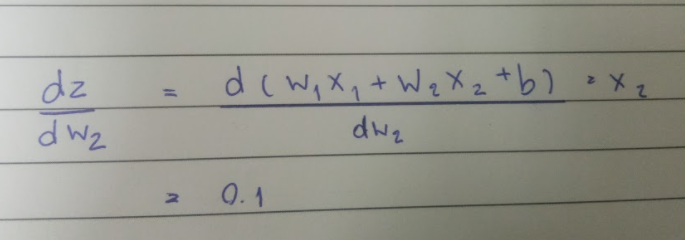 dz/dw₂ = d(w₁x₁ + w₂x₂ + b)/dw₂ = x₂
= 0.1